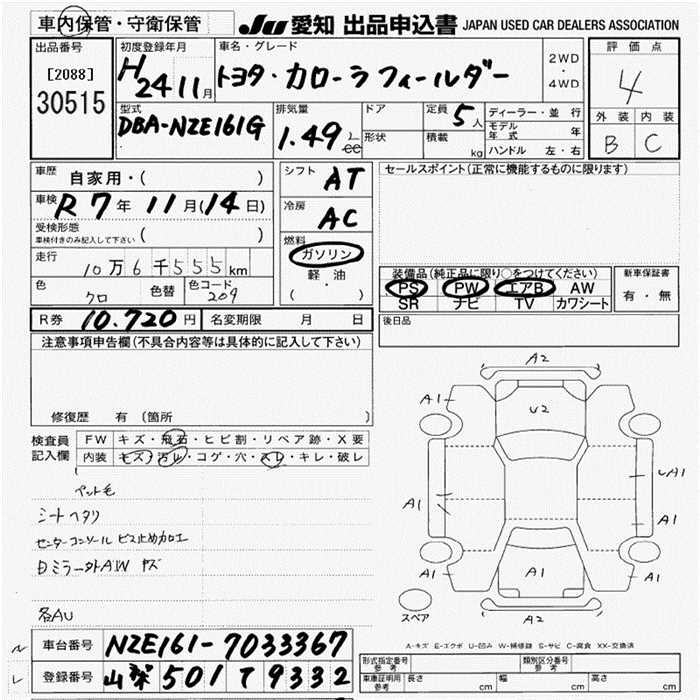 車内保管・守衛保管
JU 愛知 出品申込書 JAPAN USED CAR DEALERS ASSOCIATION
出品番号
[2088]
30515
初度登録年月
H24 11月
車名・グレード
トヨタ・カローラフィールダー
2WD
・
4WD
評価点
4
外装 内装
B C
型式
DBA-NZE161G
排気量
1.49 L
cc
ドア
形状
定員 5人
積載 kg
ディーラー・並行
モデル年式 年
ハンドル 左・右
車歴 自家用・( )
車検 R7年 11月(14日)
受検形態
車検付きのみ記入して下さい ( )
走行
10万6千555km
色 クロ
色替
色コード 209
R券 10.720円 名変期限 月 日
シフト AT
冷房 AC
燃料
ガソリン
軽・油
( )
セールスポイント(正常に機能するものに限ります)
装備品(純正品に限り○をつけてください)
PS PW エアB AW
SR ナビ TV カワシート
新車保証書
有・無
後日品
注意事項申告欄(不具合内容等は具体的に記入して下さい)
修復歴 有 (箇所
検査員記入欄
FW キズ・飛石・ヒビ割・リペア跡・X要
内装 キズ・汚レ・コゲ・穴・スレ・キレ・破レ
ペット毛
シートヘタリ
センターコンソール ビス止め加工
Dミラー外AW キズ
各AU
A2
A1
U2
A1
A1
A1
A1
A1
A1
A2
スペア
A-キズ E-エクボ U-凹み W-補修跡 S-サビ C-腐食 XX-交換済
ル 車台番号 NZE161-7033367
レ 登録番号 山梨 501 て 9332
形式指定番号
参考
類別区分番号
参考
車庫証明用
参考
長さ cm 幅 cm 高さ cm